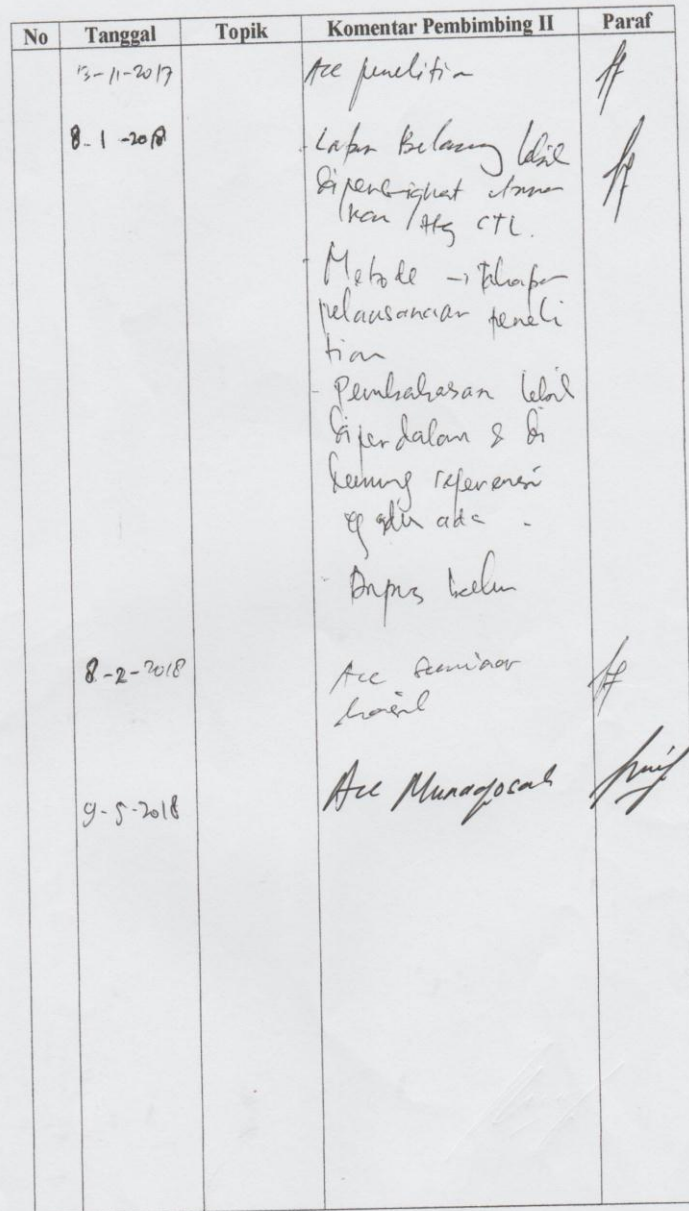 No Tanggal Topik Komentar Pembimbing II Paraf
13-11-2017 Acc penelitian
8-1-2018 - Latar Belakang lebih
CTL.
- Metode → tahapan
pelaksanaan peneli
tian
- Pembahasan lebih
diperdalam & di
referensi
yg ada -
- Dapus
8-2-2018 Acc seminar
hasil
9-5-2018 Acc Munaqosah